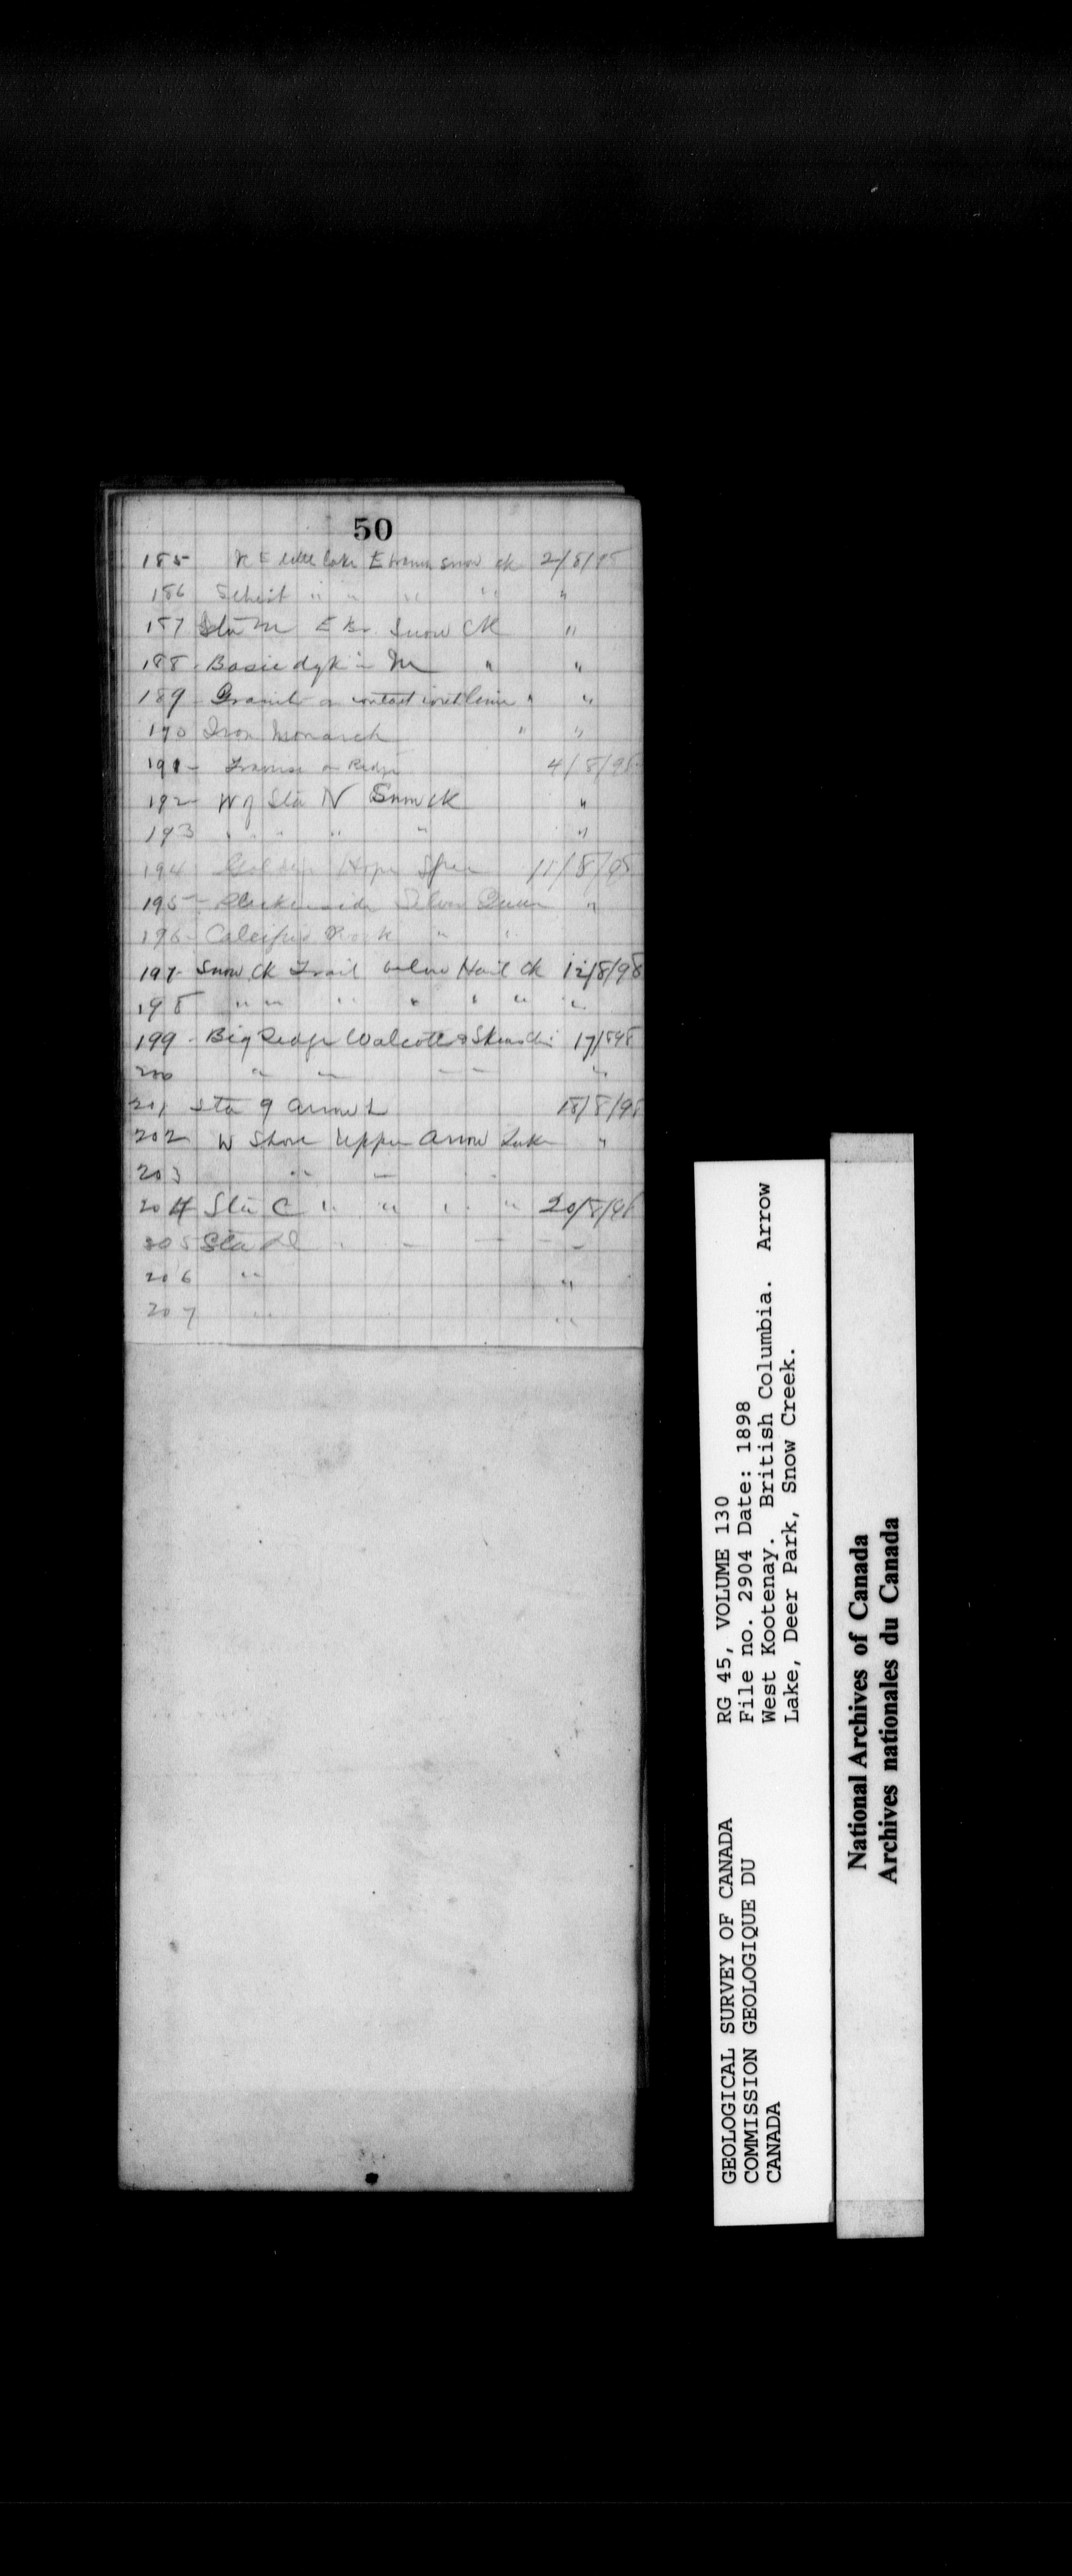 50
185 N E little lake E branch Snow ck 2/8/98
186 Schist " " " " "
187 Sta M E Br. Snow Ck "
188 Basic dyke in M " "
189 Granite on contact with lime " "
190 Iron Monarch " "
191 - Traverse on Ridge 4/8/98
192 - W of Sta N Snow ck "
193 " " " " " "
194 Golden Hope 11/8/98
195 - Slickenside Silver Queen "
196 - Calcified Rock " "
197 - Snow Ck Trail below Hail Ck 12/8/98
198 " " " " " " "
199 - Big Ledge Walcott & 17/8/98
200 " " " " "
201 Sta 9 Arrow L 18/8/98
202 W Shore Upper Arrow Lake "
203 " "
204 Sta C " " " " 20/8/98
205 Sta " " " " "
206 " "
207 " "
GEOLOGICAL SURVEY OF CANADA
COMMISSION GEOLOGIQUE DU
CANADA
RG 45, VOLUME 130
File no. 2904 Date: 1898
West Kootenay. British Columbia. Arrow
Lake, Deer Park, Snow Creek.
National Archives of Canada
Archives nationales du Canada